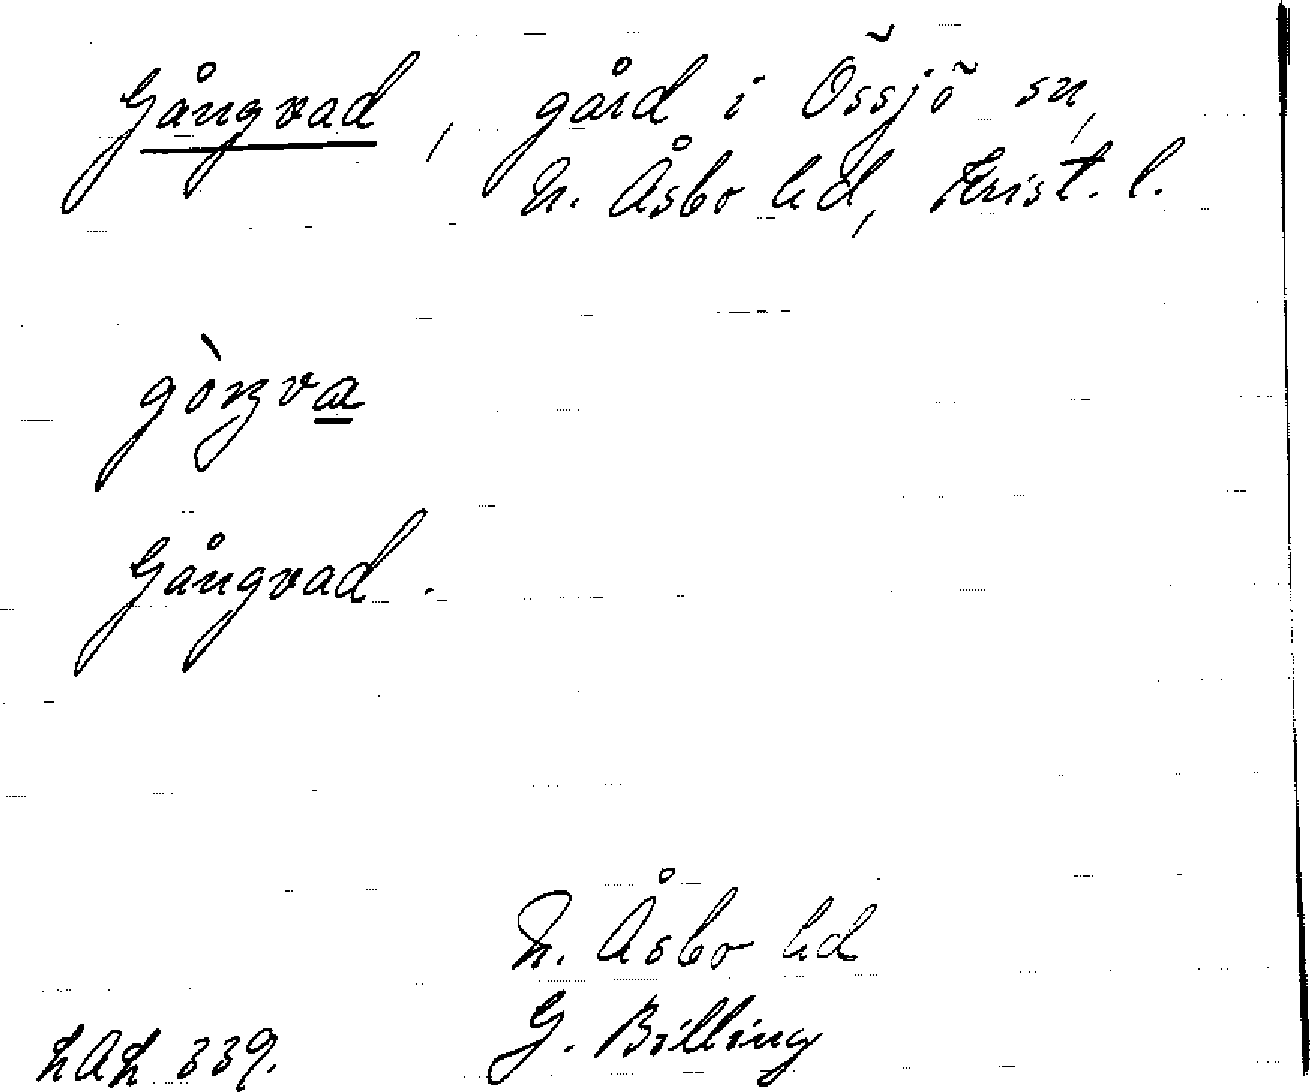 Gångvad, gård i Össjö sn,
N. Åsbo hd, Krist. l.
gòŋva
Gångvad.
N. Åsbo hd
G. Billing
LAL 339.